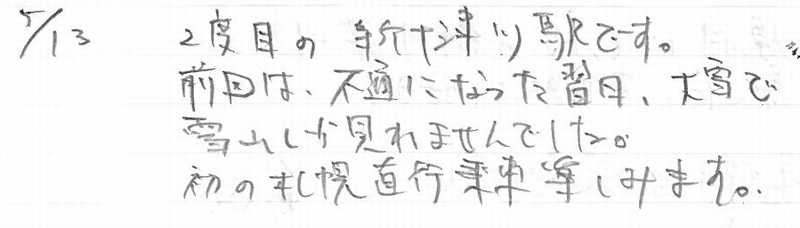 5/13 2度目の新十津川駅です。
前回は、不通になった習日、大雪で
雪山しか見れませんでした。
初の札幌直行乗車楽しみます。